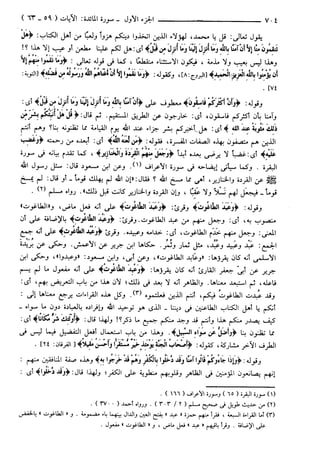 ٧٠٤ الجزء الأول - سورة المائدة: الآيات (٥٩ - ٦٣)
يقول تعالى: قل يا محمد، لهؤلاء الذين اتخذوا دينكم هزواً ولعباً من أهل الكتاب: ﴿هل
تنقمون منا إلا أن آمنا بالله وما أنزل إلينا وما أنزل من قبل﴾ أي: هل لكم علينا مطعن أو عيب إلا هذا ؟!
وهذا ليس بعيب ولا مذمة، فيكون الاستثناء منقطعاً، كما في قوله تعالى: ﴿وما نقموا منهم إلا
أن يؤمنوا بالله العزيز الحميد﴾ [البروج: ٨]، وكقوله: ﴿وما نقموا إلا أن أغناهم الله ورسوله من فضله﴾ [التوبة:
٧٤] .
وقوله: ﴿وأن أكثركم فاسقون﴾ معطوف على ﴿أن آمنا بالله وما أنزل إلينا وما أنزل من قبل﴾ أي:
وآمنا بأن أكثركم فاسقون، أي: خارجون عن الطريق المستقيم. ثم قال: ﴿قل هل أنبئكم بشر من
ذلك مثوبة عند الله﴾ أي: هل أخبركم بشر جزاء عند الله يوم القيامة مما تظنونه بنا؟ وهم أنتم
الذين هم متصفون بهذه الصفات القصيرة، فقوله: ﴿من لعنه الله﴾ أي: أبعده من رحمته ﴿وغضب
عليه﴾ أي: غضباً لا يرضى بعده أبداً ﴿وجعل منهم القردة والخنازير﴾، كما تقدم بيانه في سورة
البقرة . وكما سيأتي إيضاحه في سورة الأعراف (١). وعن ابن مسعود قال: سئل رسول الله
ﷺ عن القردة والخنازير، أهي مما مسخ الله ؟ فقال: «إن الله لم يهلك قوماً - أو قال: لم يمسخ
قوماً - فيجعل لهم نسلاً ولا عقباً، وإن القردة والخنازير كانت قبل ذلك». رواه مسلم (٢) .
وقوله: ﴿وعبد الطاغوت﴾ وقرئ: ﴿وعبد الطاغوت﴾ على أنه فعل ماض، و«الطاغوت»
منصوب به، أي: وجعل منهم من عبد الطاغوت. وقرئ: ﴿وعبد الطاغوت﴾ بالإضافة على أن
المعنى: وجعل منهم خدم الطاغوت، أي: خدامه وعبيده. وقرئ: ﴿وعبد الطاغوت﴾ على أنه جمع
الجمع: عبد وعبيد وعبد، مثل ثمار وثمر. حكاها ابن جرير عن الأعمش، وحكي عن بريدة
الأسلمي أنه كان يقرؤها: «وعابد الطاغوت»، وعن أبي، وابن مسعود: «وعبدوا»، وحكى ابن
جرير عن أبي جعفر القارئ أنه كان يقرؤها: ﴿وعبد الطاغوت﴾ على أنه مفعول ما لم يسم
فاعله، ثم استبعد معناها. والظاهر أنه لا بعد في ذلك؛ لأن هذا من باب التعريض بهم، أي:
وقد عبدت الطاغوت فيكم، أنتم الذين فعلتموه (٣). وكل هذه القراءات يرجع معناها إلى:
أنكم يا أهل الكتاب الطاعنين في ديننا، الذي هو توحيد الله وإفراده بالعبادة دون ما سواه -
كيف يصدر منكم هذا وأنتم قد وجد منكم جميع ما ذكر؟! ولهذا قال: ﴿أولئك شر مكانا﴾ أي:
مما تظنون بنا ﴿وأضل عن سواء السبيل﴾. وهذا من باب استعمال أفعل التفضيل فيما ليس في
الطرف الآخر مشاركة، كقوله: ﴿أصحاب الجنة يومئذ خير مستقرا وأحسن مقيلا﴾ [الفرقان: ٢٤] .
وقوله: ﴿وإذا جاءوكم قالوا آمنا وقد دخلوا بالكفر وهم قد خرجوا به﴾ وهذه صفة المنافقين منهم:
إنهم يصانعون المؤمنين في الظاهر وقلوبهم منطوية على الكفر؛ ولهذا قال: ﴿وقد دخلوا﴾ أي:
(١) سورة البقرة (٦٥) وسورة الأعراف (١٦٦) .
(٢) من حديث طويل في صحيح مسلم (٢ / ٣٠٣) . ورواه أحمد (٣٧٠٠) .
(٣) أما القراءة السبعة، فقرأ منهم حمزة «عبد» بفتح العين والدال بينهما باء مضمومة . و«الطاغوت» بالخفض
على الإضافة . وقرأ باقيهم «عبد» فعل ماض، و«الطاغوت» مفعول .